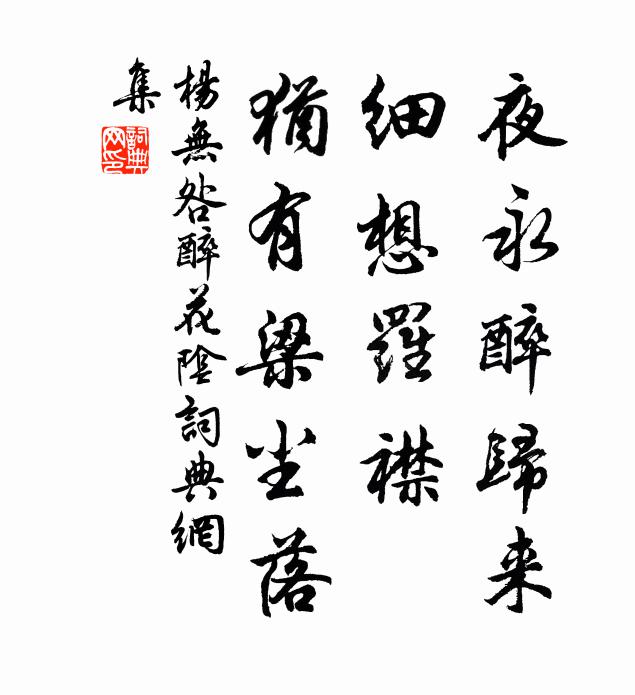 夜永醉歸来
细想羅襟
猶有梁尘落
楊無咎醉花陰詞典網
集
詞典
网印